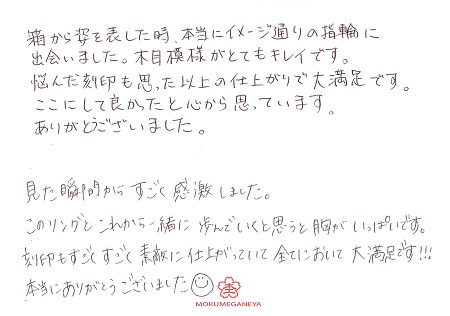 箱から姿を表した時、本当にイメージ通りの指輪に
出会いました。木目模様がとてもキレイです。
悩んだ刻印も思った以上の仕上がりで大満足です。
ここにして良かったと心から思っています。
ありがとうございました。
見た瞬間からすごく感激しました。
このリングとこれから一緒に歩んでいくと思うと胸がいっぱいです。
刻印もすごくすごく素敵に仕上がっていて全てにおいて大満足です!!!
本当にありがとうございました
MOKUMEGANEYA